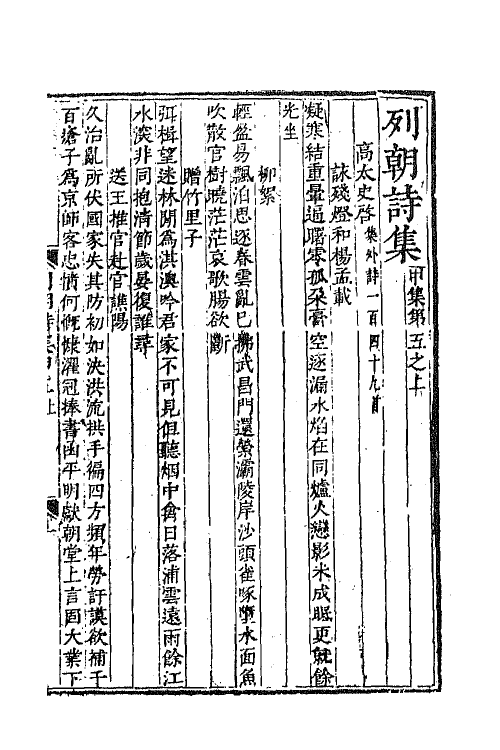 列朝詩集 甲集第五之上
高太史啓 集外詩一百四十九首
詠殘燈和楊孟載
凝寒結重暈逼曙零孤朶膏空逐漏水焰在同爐火戀影未成眠更就餘
光坐
柳絮
輕盈易飄泊思逐春雲亂已拂武昌門還縈灞陵岸沙頭雀啄墮水面魚
吹散官樹曉茫茫哀歌腸欲斷
贈竹里子
弭楫望迷林閒爲淇澳吟君家不可見但聽烟中禽日落浦雲遠雨餘江
水深非同抱清節歲晏復誰尋
送王推官赴官譙陽
久治亂所伏國家失其防初如泱洪流拱手徧四方頻年勞訏謨欲補千
百瘡子爲京師客忠憤何慨慷濯冠捧書函平明獻朝堂上言固大業下